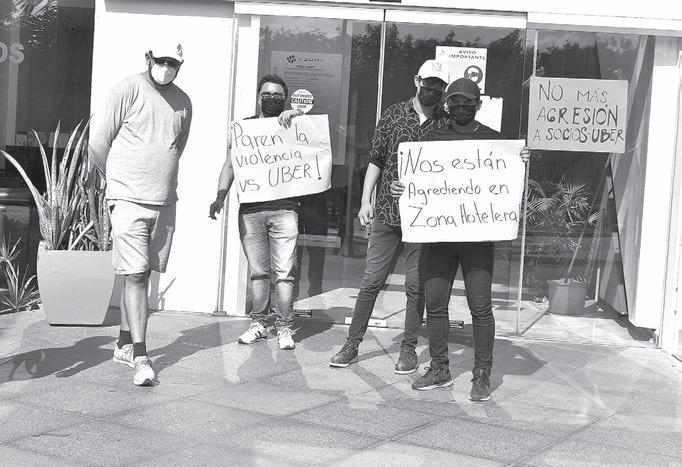 os
AZUNA
AUTOMATIC
CAUTION
DOOR
AVISO
IMPORTANTE
Paren la
violencia
vs UBER!
¡Nos están
Agrediendo en
Zona Hotelera
NO MÁS
AGRESIÓN
A SOCIOS-UBER